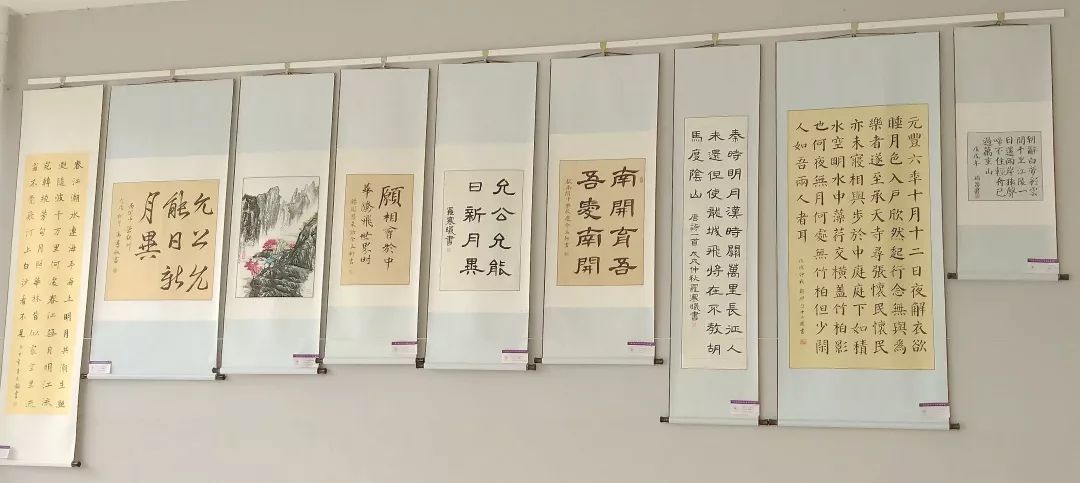 春江潮水連海平海上明月共潮生灩
灩隨波千万里何處春江無月明江流
宛轉繞芳甸月照花林皆似霰空里流
霜不覺飛汀上白沙看不見
允公允
能日新
月異
願相會於中
華騰飛世界时
允公允能
日新月異
羅寒曦書
南開育吾
吾愛南開
秦時明月漢時關萬里長征人
未還但使龍城飛將在不教胡
馬度陰山 唐詩一首戊戌仲秋羅寒曦書
元豐六年十月十二日夜解衣欲
睡月色入戶欣然起行念無與為
樂者遂至承天寺尋張懷民懷民
亦未寢相與步於中庭庭下如積
水空明水中藻荇交橫蓋竹柏影
也何夜無月何處無竹柏但少閑
人如吾兩人者耳
朝辭白帝彩雲
間千里江陵一
日還兩岸猿聲
啼不住輕舟已
過萬重山
戊戌年